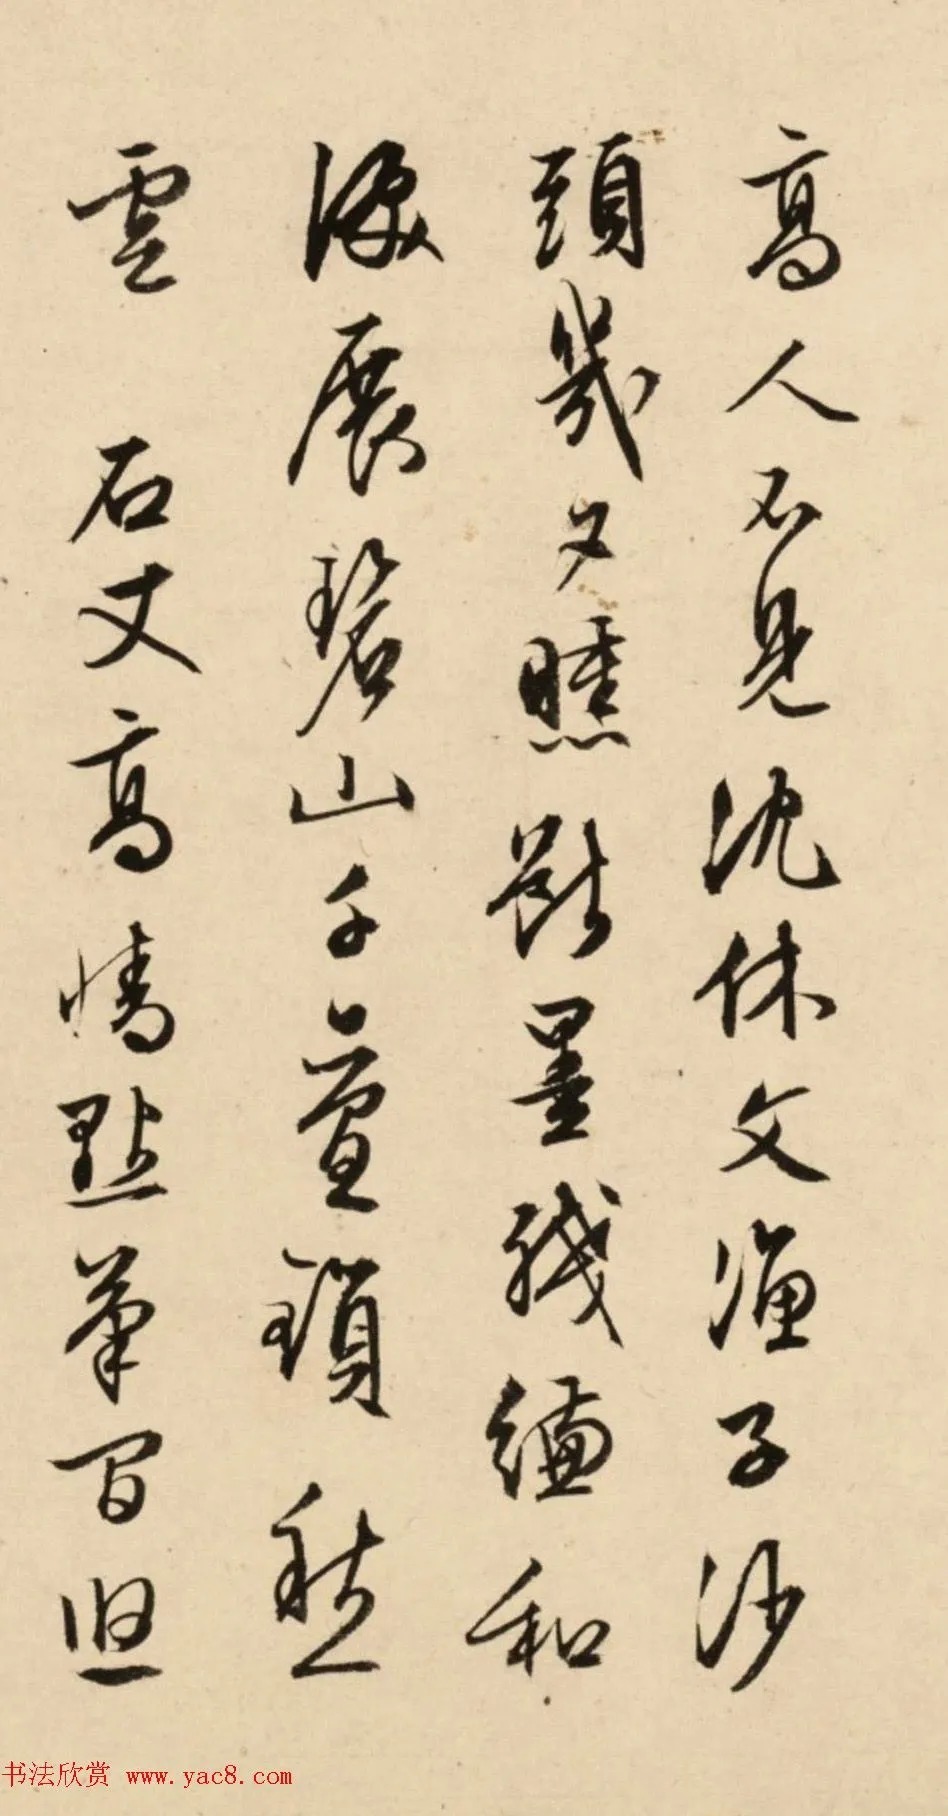 高人不見沈休文漁子沙
頭幾夕曛斷墨殘縑和
淚展碧山千疊鎖愁
雲 石丈高情點筆間思
书法欣赏 www.yac8.com